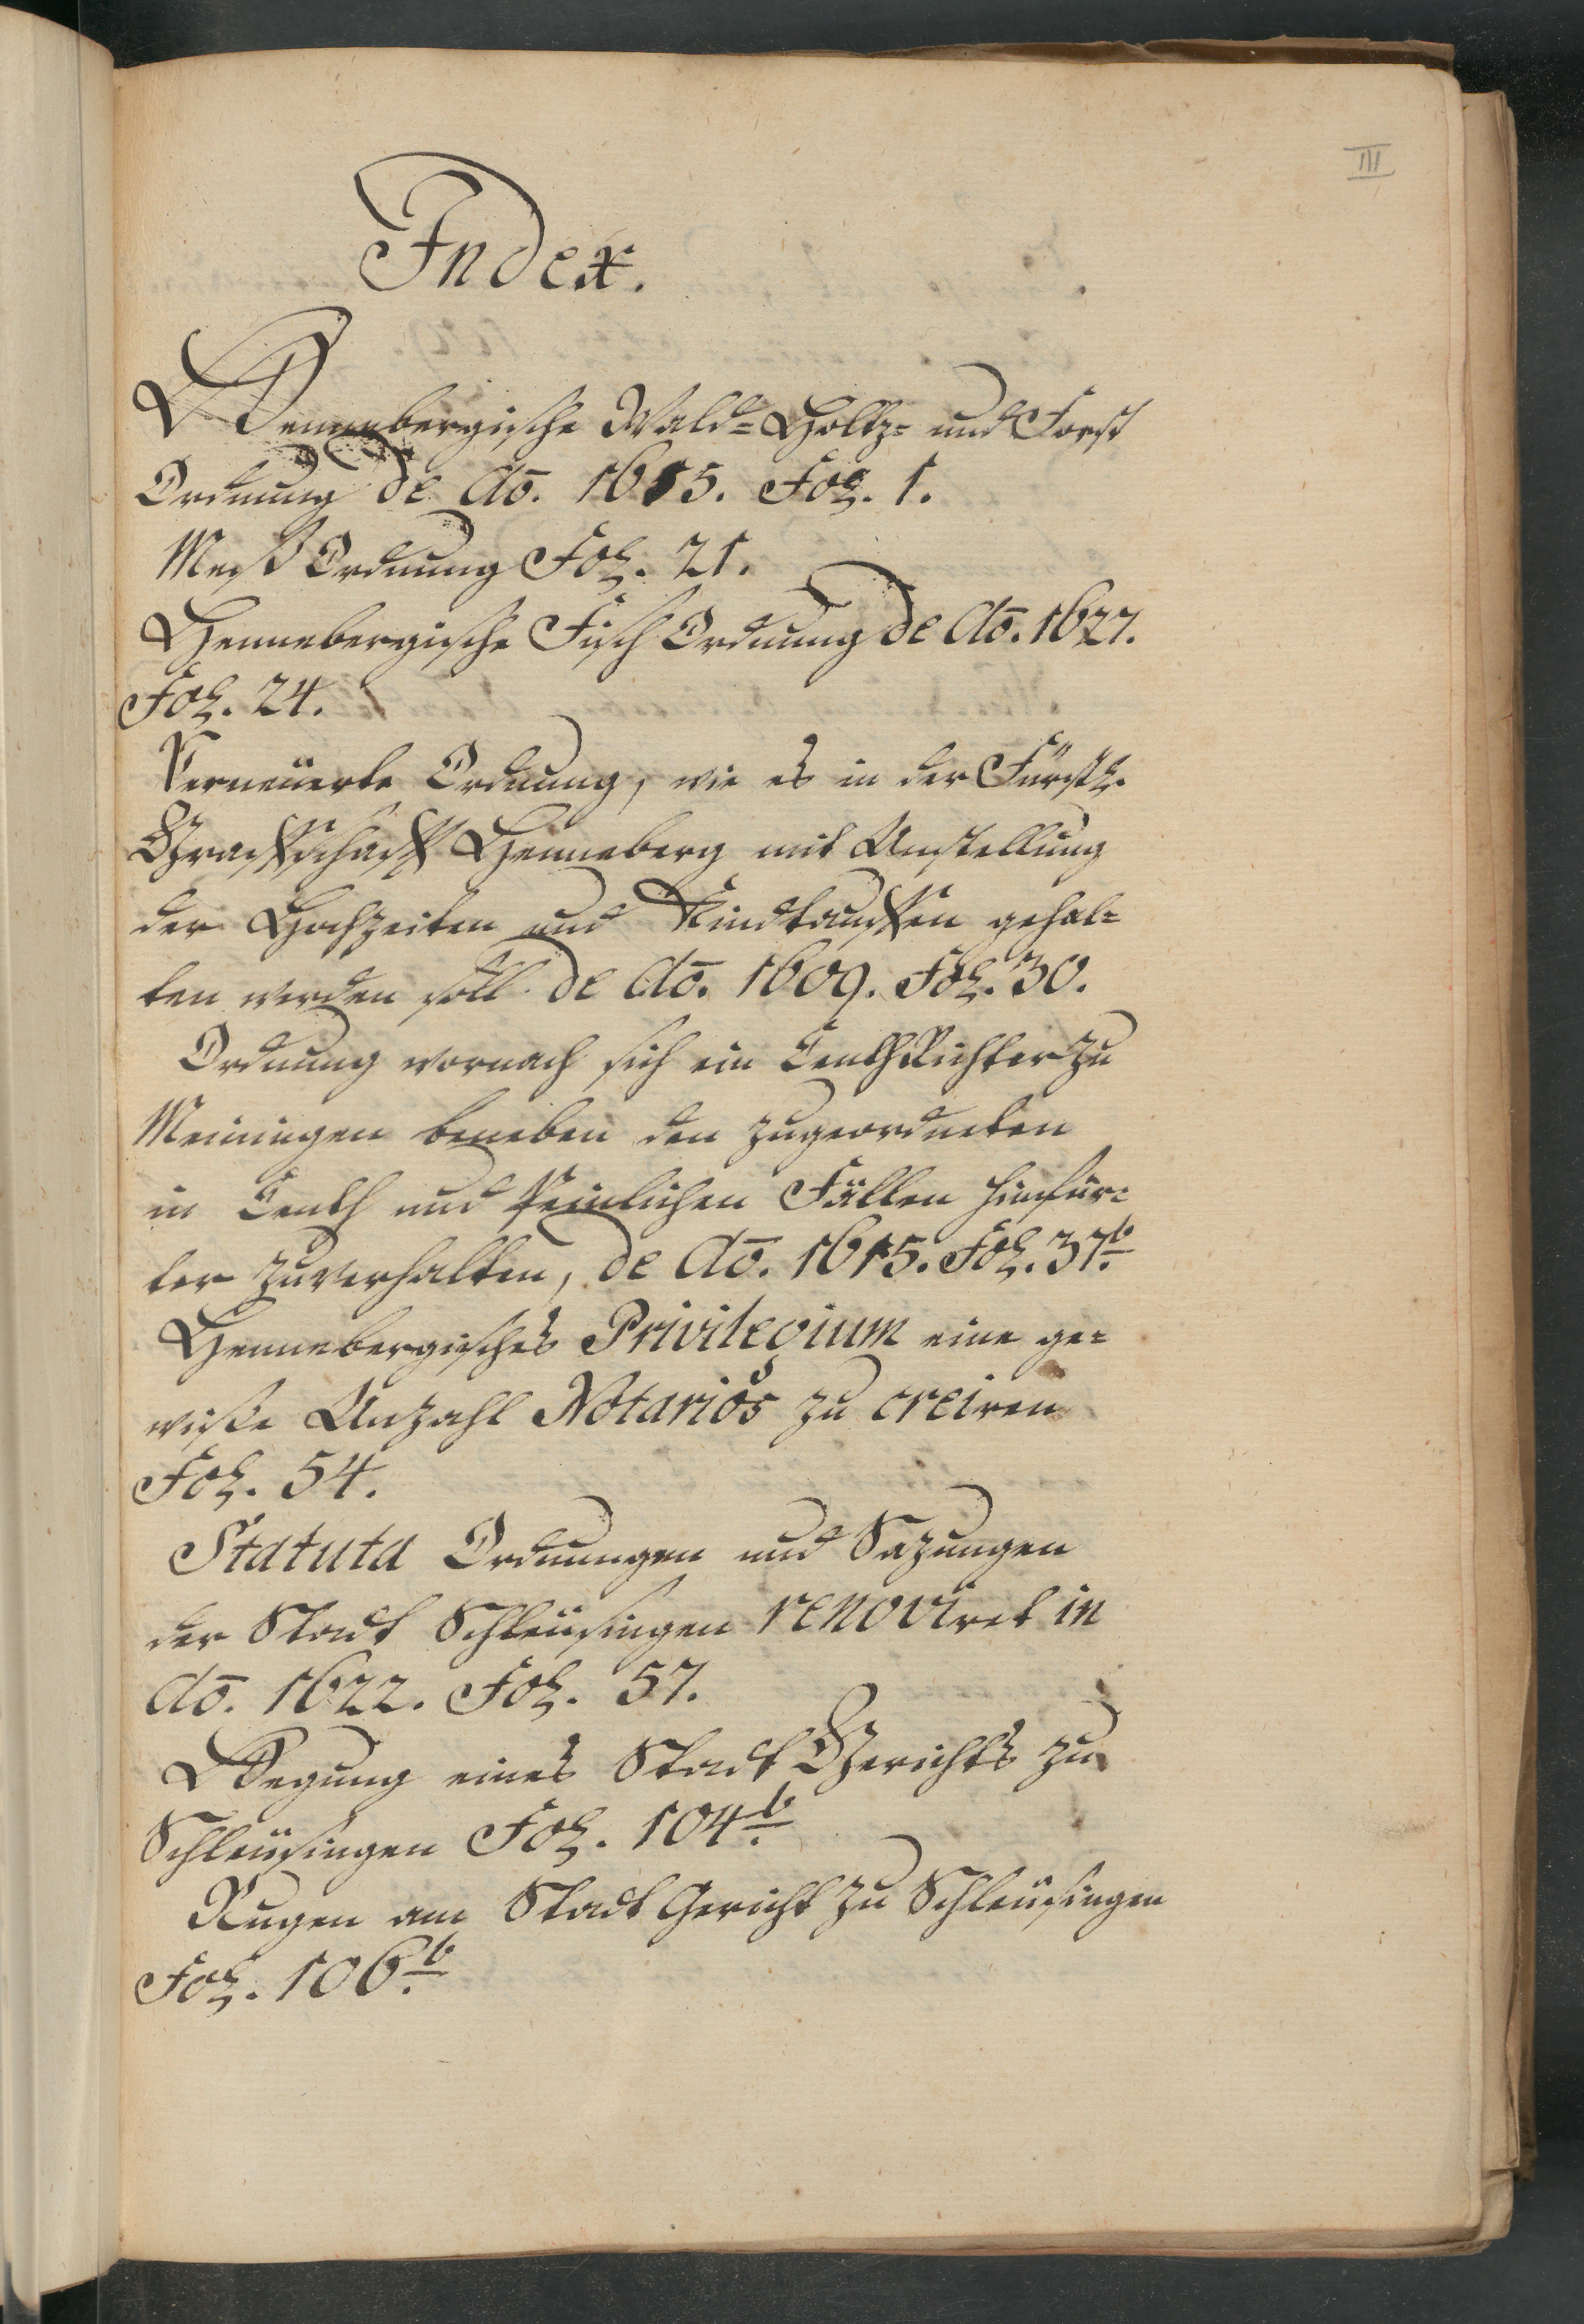 III
Index.
Hennebergische Wald= Holtz= und Forst
Ordnung de Ao. 1615. Fol. 1.
Meß Ordnung Fol. 21.
Hennebergische Fisch Ordnung de Ao. 1627.
Fol. 24.
Verneuerte Ordnung, wie es in der Fürstl.
Graffschafft Henneberg mit Anstellung
der Hochzeiten und Kindtauffen gehal=
ten werden soll de Ao. 1609. Fol. 30.
Ordnung wornach sich ein CenthRichter zu
Meiningen beneben den zugeordneten
in Centh und Peinlichen Fällen hinfür=
ter zuverhalten, de Ao. 1615. Fol. 37b.
Hennebergisches Privilegium eine ge=
wiße Anzahl Notarios zu creiren
Fol. 54.
Statuta Ordnungen und Sazungen
der Stadt Schleüsingen renoviret in
Ao. 1622. Fol. 57.
Hegung eines Stadt Gerichts zu
Schleüsingen Fol. 104b.
Rugen am Stadt Gericht zu Schleüsingen
Fol. 106b.